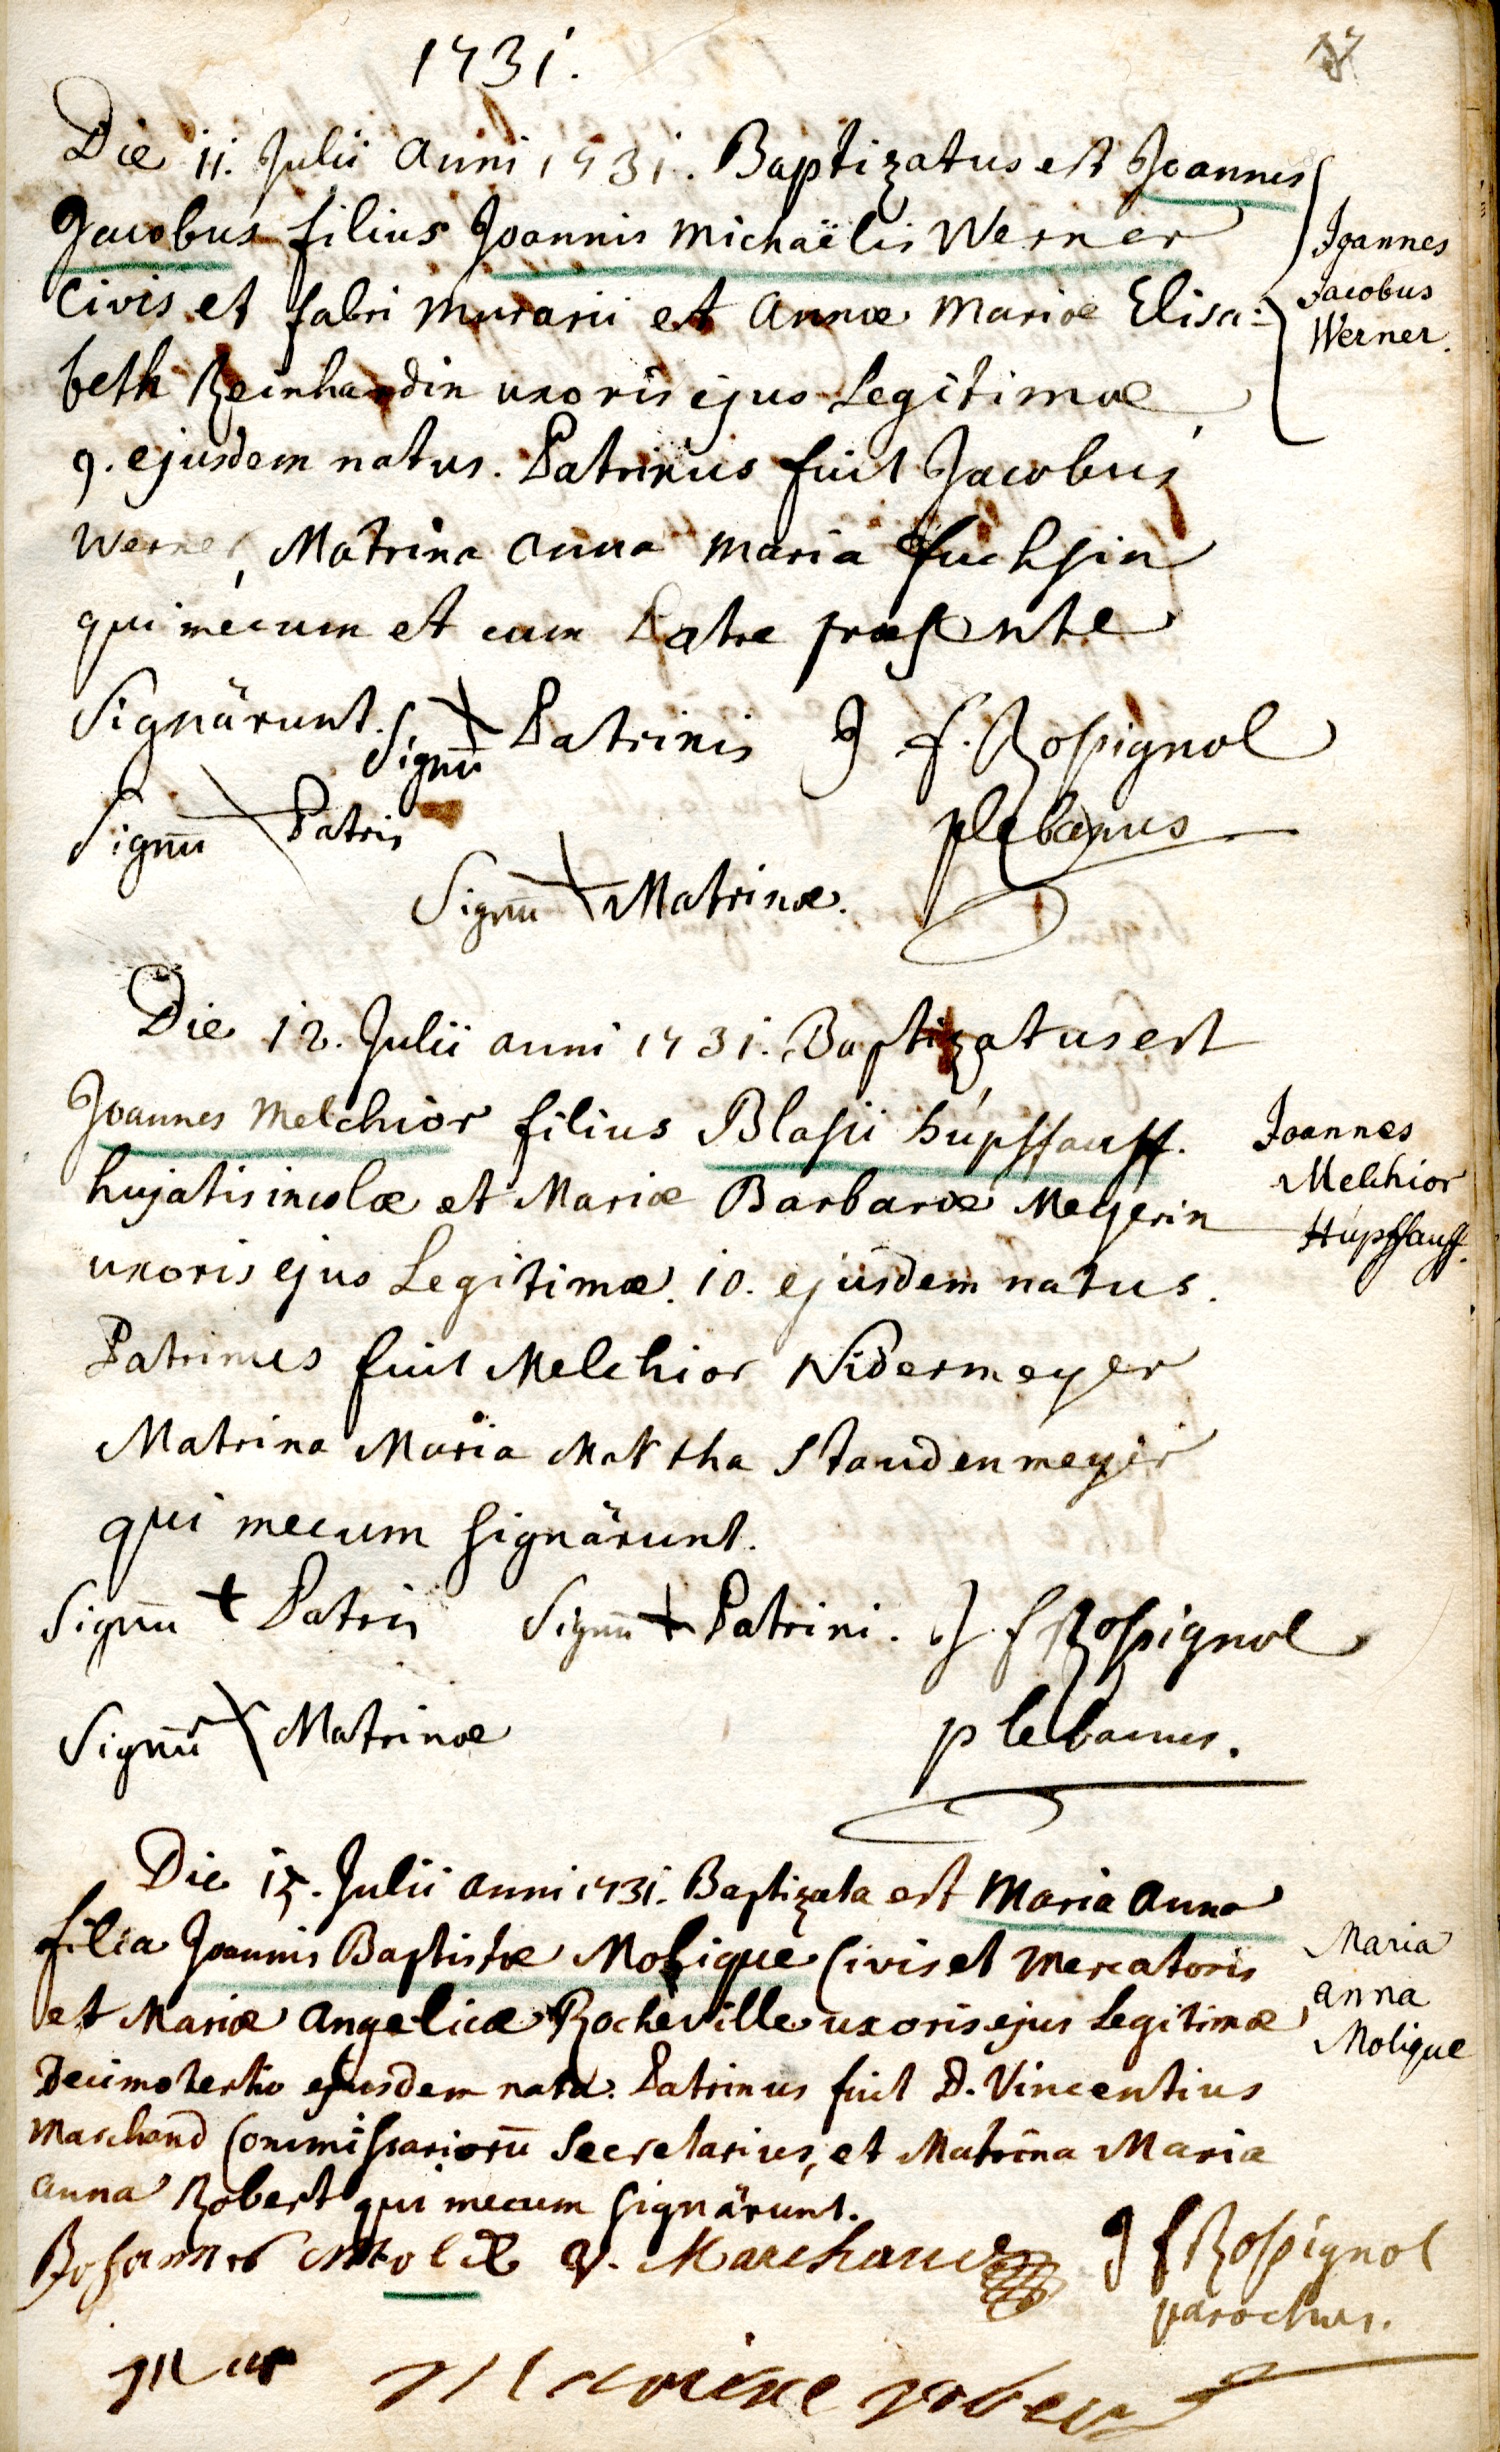 1731.
17
Die 11. Julii Anni 1731. Baptizatus est Joannes
Jacobus filius Joannis Michaëlis Werner
Civis et fabri murarii et Annæ Mariæ Elisa:
beth Reinhardin uxoris ejus Legitimæ,
9. ejusdem natus. Patrinus fuit Jacobus
Werner, Matrina Anna Maria fuchsin
qui mecum et cum Patre præsente
Signärunt.
Joannes
Jacobus
Werner.
Signū Patrinis
J f. Rossignol
plebanus
Signū Patris
Signū Matrinæ.
Die 12. Julii anni 1731. Baptizatus est
Joannes Melchior filius Blasii húpffauff.
hujatis incolæ et Mariæ Barbaræ Meyerin
uxoris ejus Legitimæ. 10. ejusdem natus.
Patrinus fuit Melchior Nidermeyer
Matrina Maria Martha Staudenmeyer
qui mecum signärunt.
Joannes
Melchior
Húpffauff.
Signū + Patris Signū + Patrini. J. f Rossignol
plebanus.
Signū Matrinæ
Die 15. Julii anni 1731. Baptizata est Maria Anna
filia Joannis Baptistæ Molique Civis et Mercatoris
et Mariæ Angelicæ Rocheville uxoris ejus Legitimæ,
Decimotertio ejusdem nata. Patrinus fuit D. Vincentius
Marchand Commissariorū Secretarius, et Matrina Maria
Anna Robert qui mecum signärunt.
Maria
anna
Molique
Marchand
J f Rossignol
parochus.